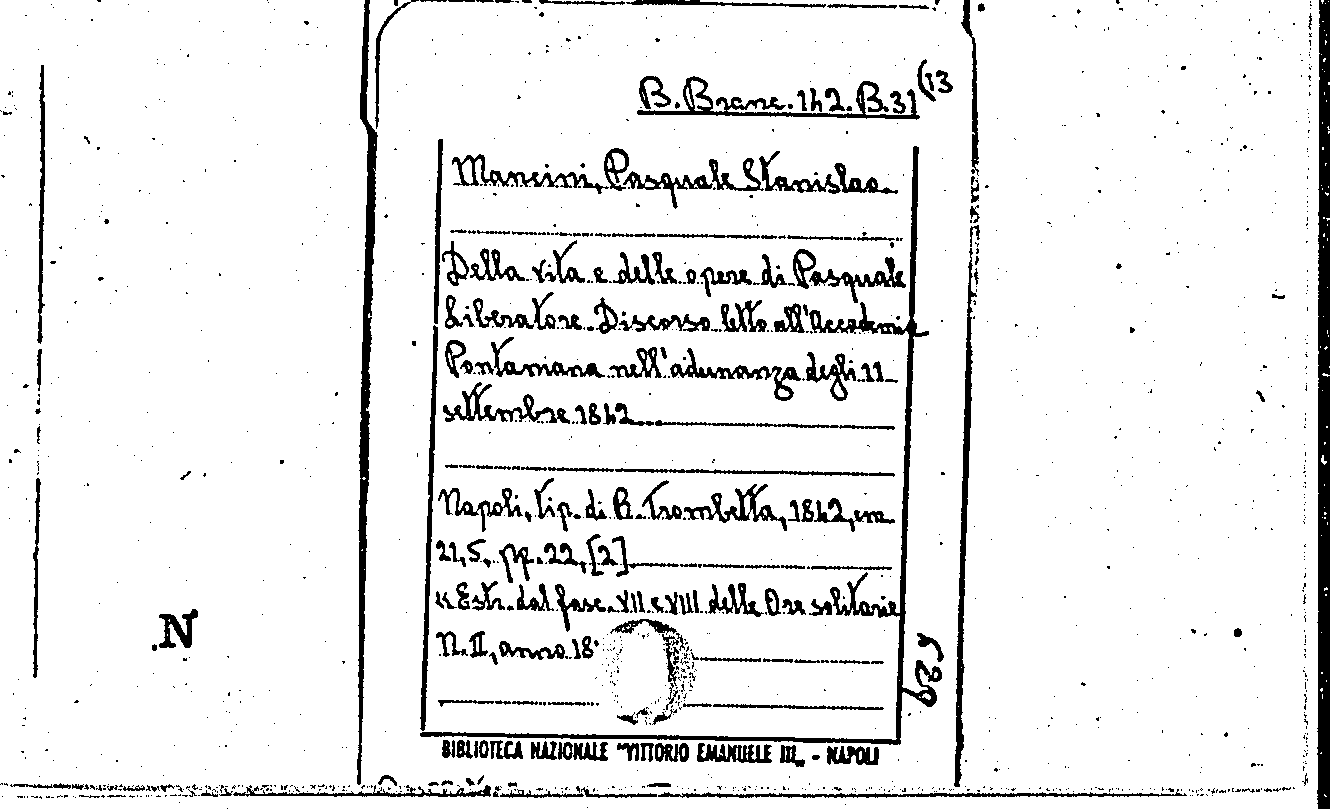 B. Branc. 142. B. 31 (13
Mancini, Pasquale Stanislao.
Della vita e delle opere di Pasquale
Liberatore. Discorso letto all'Accademia
Pontaniana nell'adunanza degli 11
settembre 1842...
Napoli, tip. di B. Trombetta, 1842, cm.
21,5, pp. 22, [2]
"Estr. dal fasc. VII e VIII delle Ore solitarie
N. II, anno 18
N
629
BIBLIOTECA NAZIONALE "VITTORIO EMANUELE III„ - NAPOLI